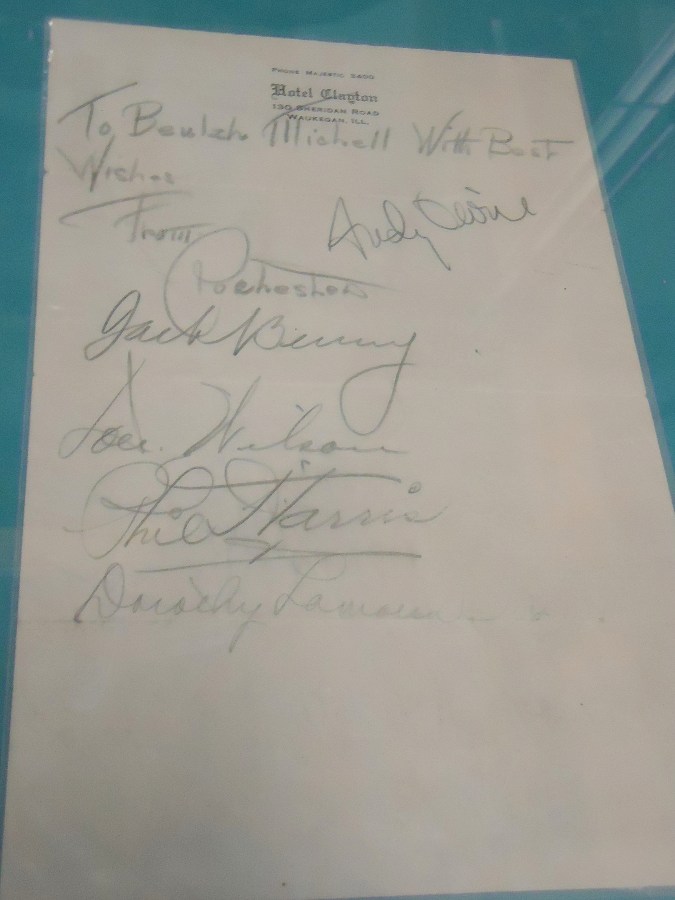 PHONE MAJESTIC 2400
Hotel Clayton
130 SHERIDAN ROAD
WAUKEGAN, ILL.
To Beulah Michell With Best
Wishes
From
Andy Devine
Rochester
Jack Benny
Don Wilson
Phil Harris
Dorothy Lamour